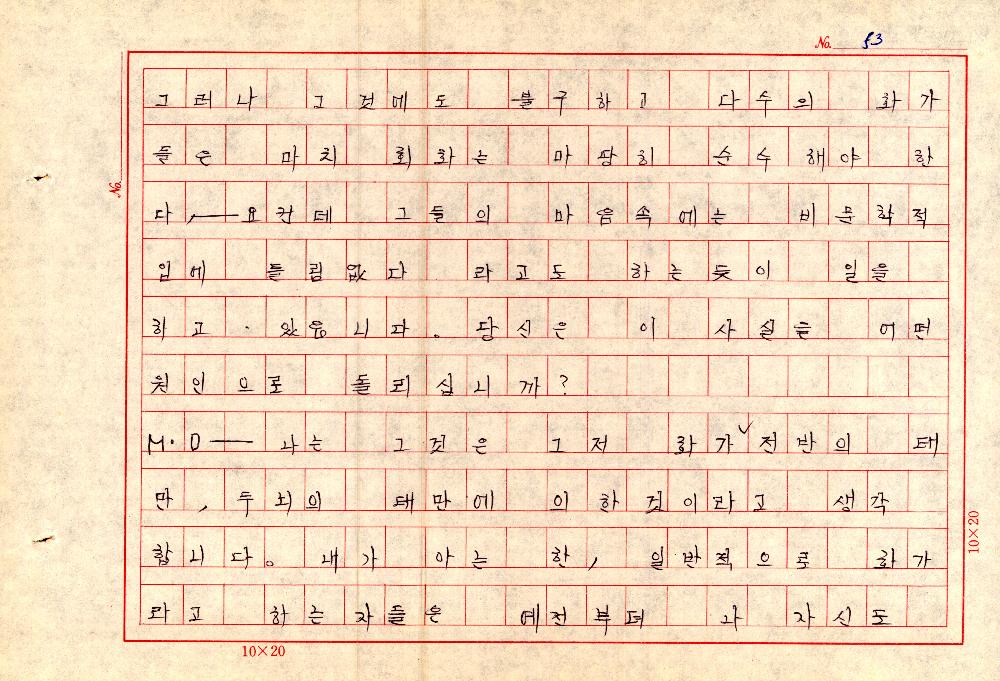 No. 53
그러나 그것에도 불구하고 다수의 화가
들은 마치 회화는 마땅히 순수해야 한
다,——요컨데 그들의 마음속에는 비문학적
임에 틀림없다 라고도 하는듯이 일을
하고 · 있읍니다. 당신은 이 사실을 어떤
원인으로 돌리십니까?
M·D—— 나는 그것은 그저 화가✓전반의 태
만, 두뇌의 태만에 의한것이라고 생각
합니다. 내가 아는 한, 일반적으로 화가
라고 하는자들은 예전부터 나 자신도
No.
10×20
10×20